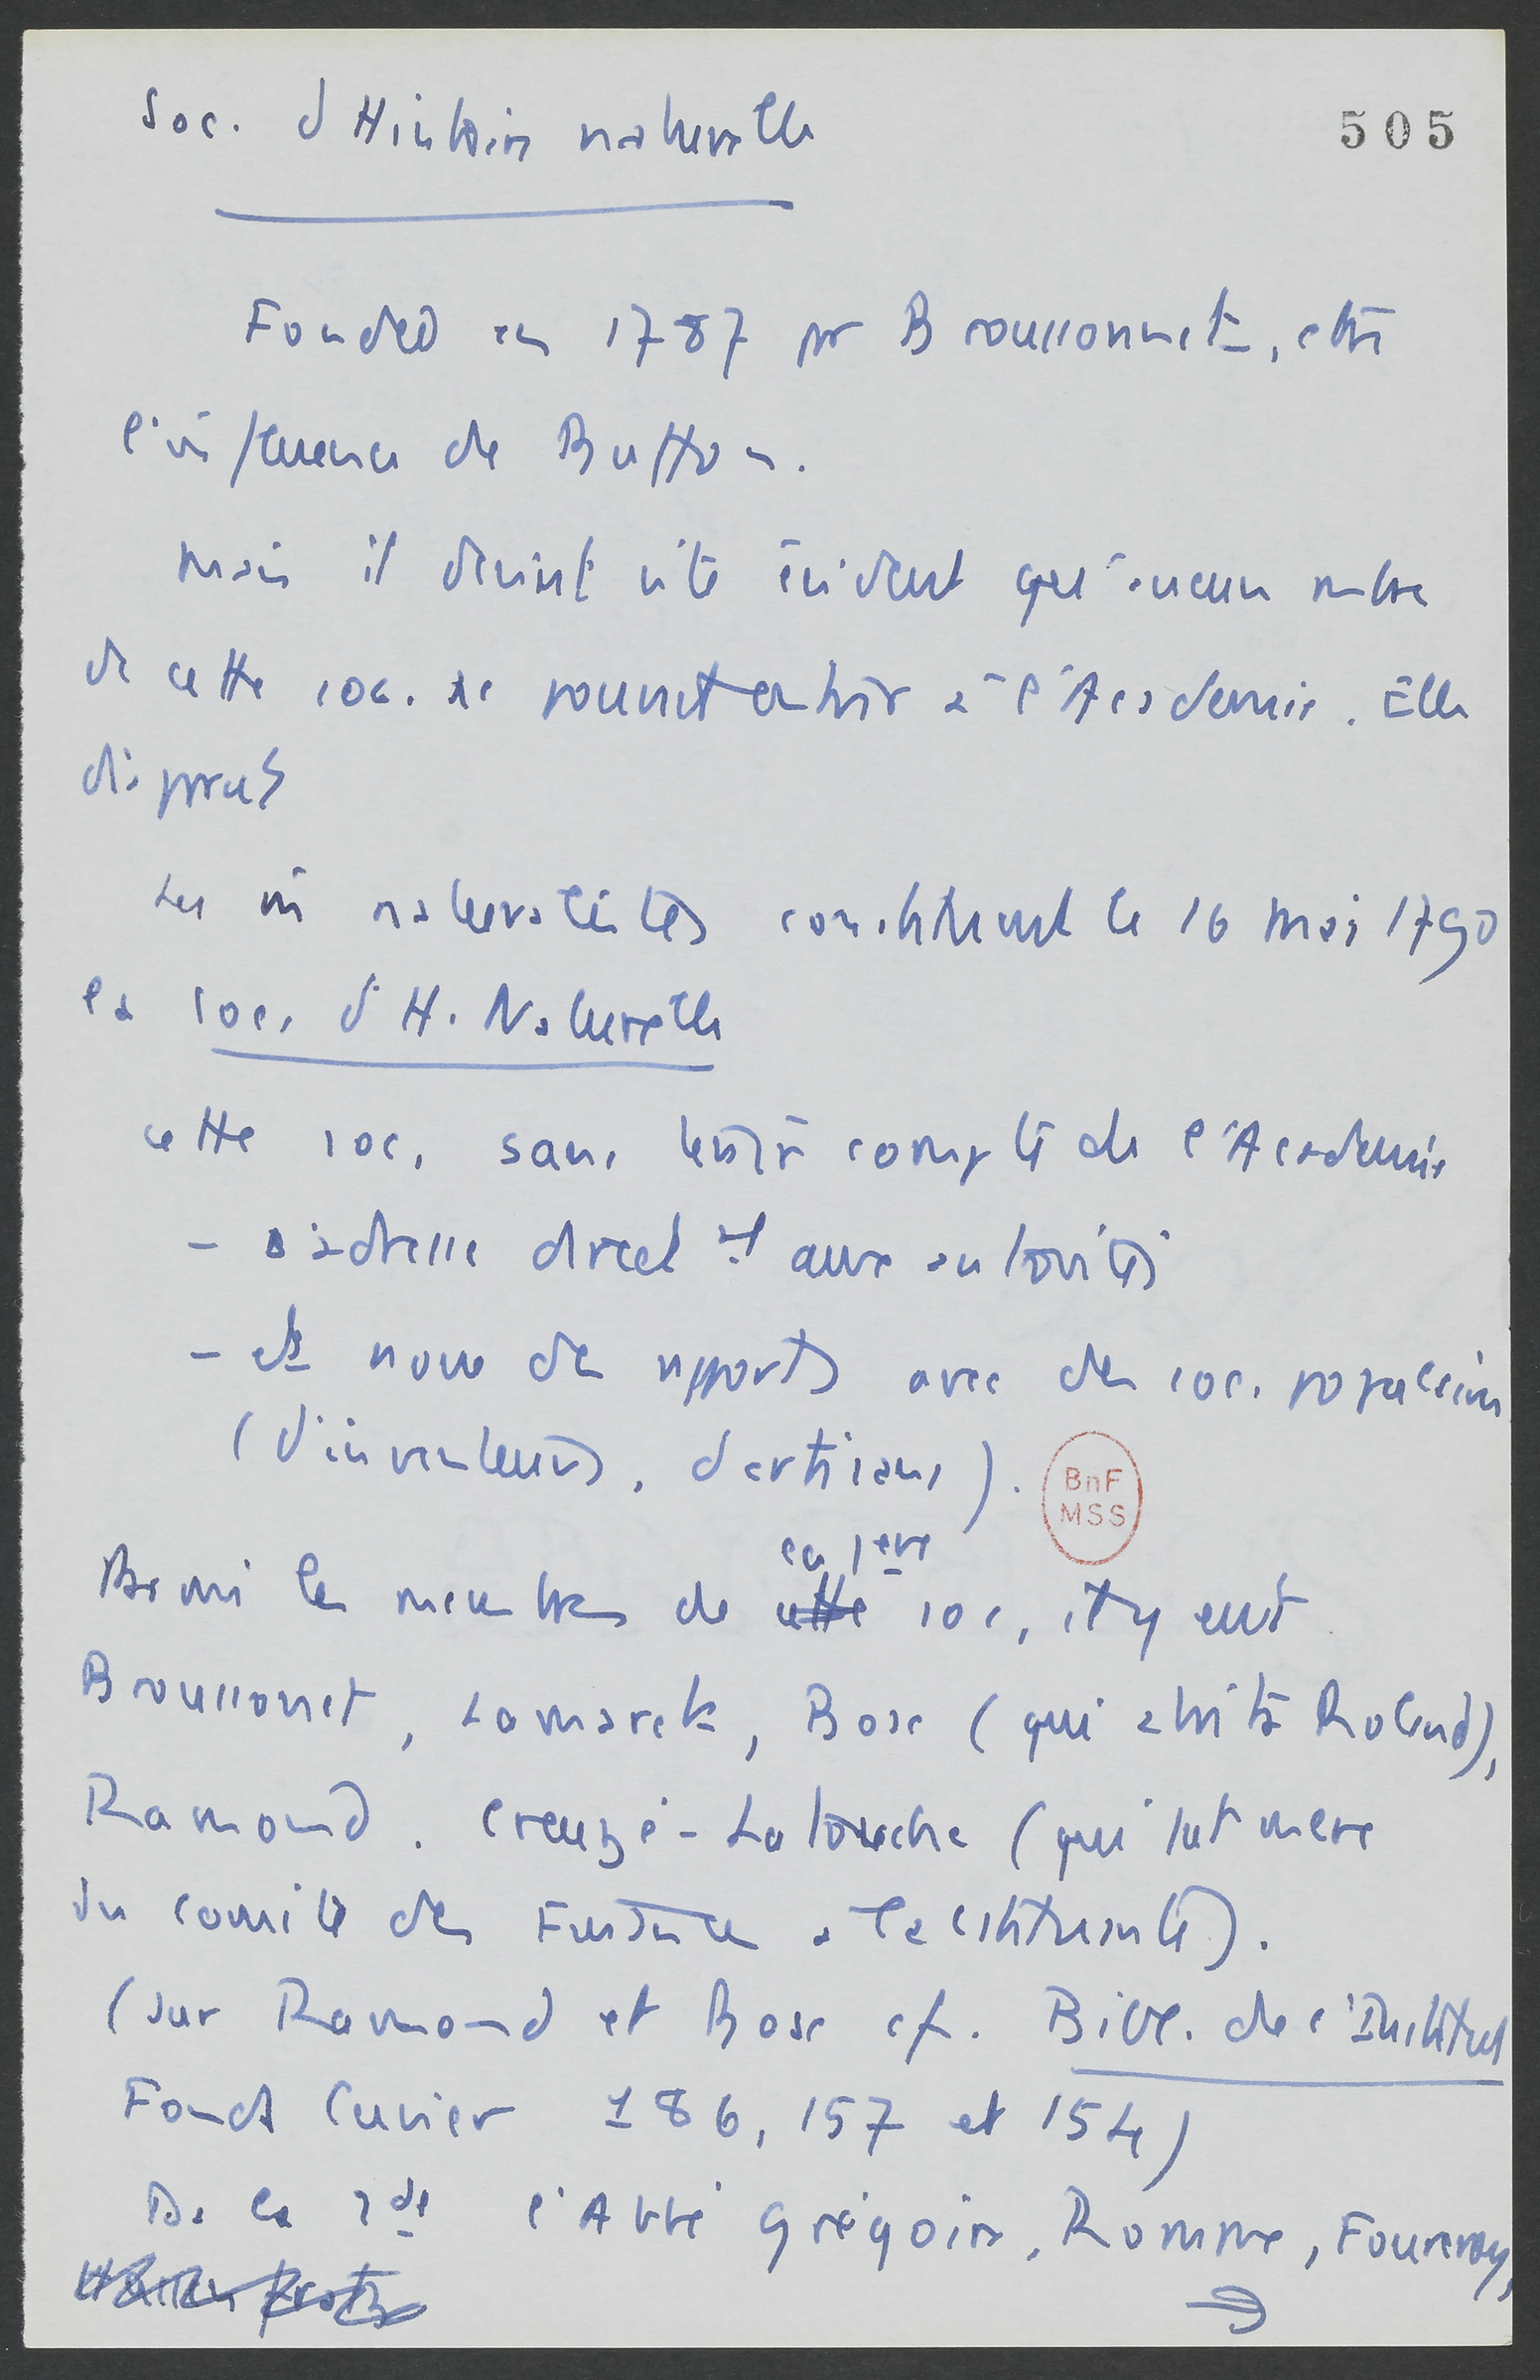 Soc. d'Histoire naturelle
505
Fondée en 1787 par Broussonnet, 
l'influence de Buffon.
Mais il devint vite évident qu'aucun mbre
de cette soc. ne pourrait entrer à l'Académie. Elle
disparut
Les naturalistes constituent le 16 mai 1790
la Soc. d'H. Naturelle
cette soc, sans tenir compte de l'Académie
- s'adresse directt aux autorités
- et noue des rapports avec des soc. populaires
(d'inventeurs, d'artisans).
BnF
MSS
la 1ere
Parmi les membres de cette soc, il y eut
Broussonet, Lamarck, Bosc (qui abrita Roland),
Ramond. Creuzé-Latouche (qui fut mbre
du comité des Finances à la Cstituante).
(sur Ramond et Bosc cf. Bibl. de l'Institut
Fonds Cuvier 186, 157 et 154)
De la 2de l'Abbé Grégoire, Romme, Fourcroy,
→